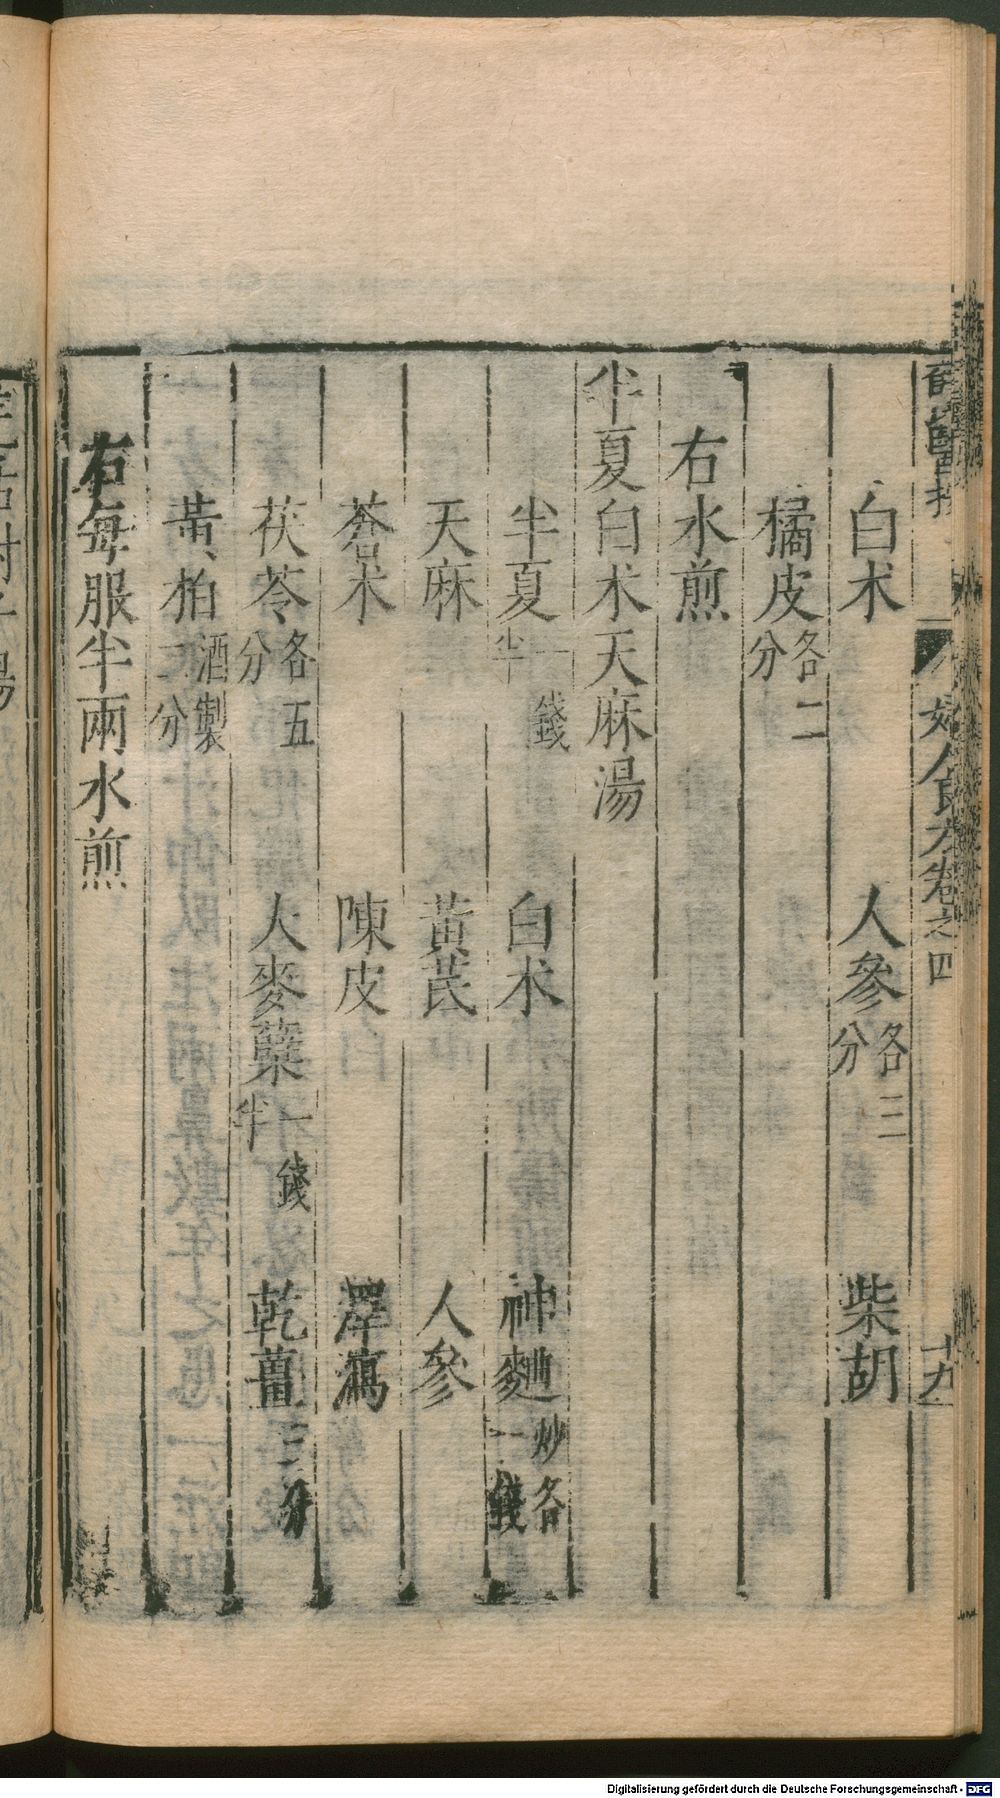 婦人良方卷之四
十九
白朮 人參各三分 柴胡
橘皮各二分
右水煎
半夏白朮天麻湯
半夏一錢半 白朮 神麯炒各一錢
天麻 黃芪 人參
蒼朮 陳皮 澤瀉
茯苓各五分 大麥糵一錢半 乾薑三分
黃柏酒製二分
右每服半兩水煎
Digitalisierung gefördert durch die Deutsche Forschungsgemeinschaft - DFG